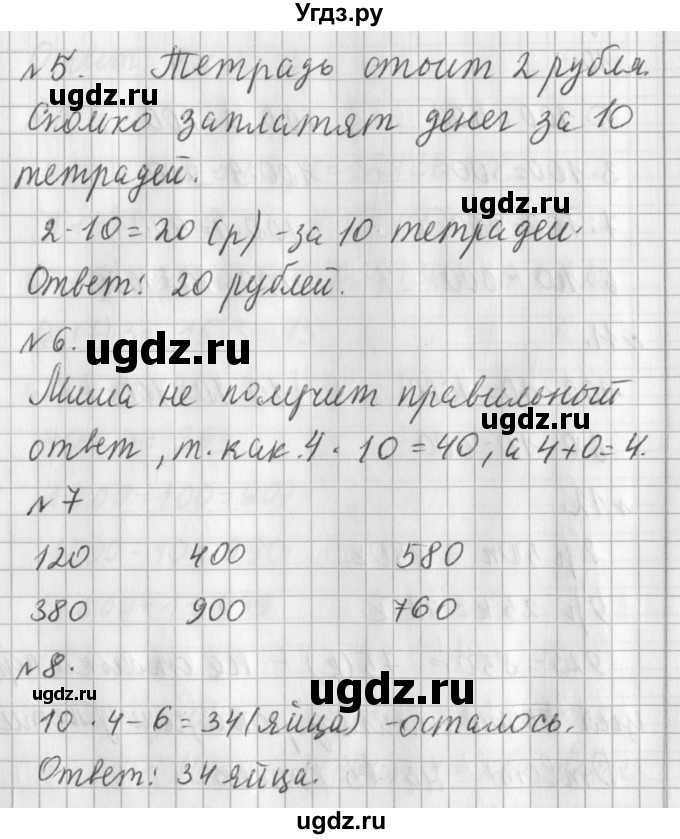 Угдз.ру
№5. Тетрадь стоит 2 рубля.
Сколько заплатят денег за 10
тетрадей.
ugdz.ru
2·10=20 (р) -за 10 тетрадей.
Ответ: 20 рублей.
№6.
ugdz.ru
Миша не получит правильный
ugdz.ru
ответ, т. как. 4·10=40, а 4+0=4.
№7
120 400 580
380 900 760
№8.
ugdz.ru
ugdz.ru
10·4-6=34 (яйца) -осталось.
Ответ: 34 яйца.
ugdz.ru